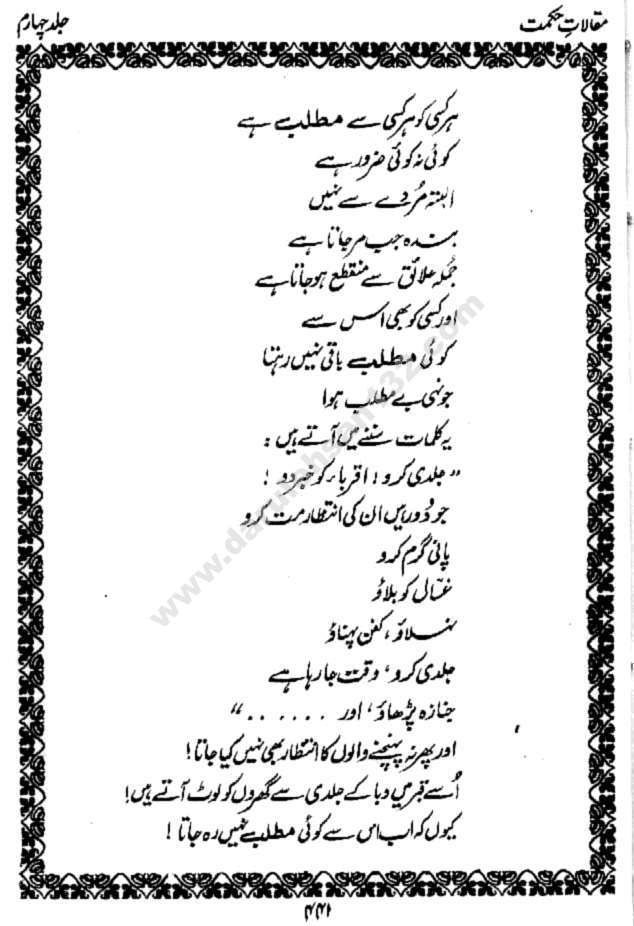 مقالاتِ حکمت
جلد چہارم
ہر کسی کو ہر کسی سے مطلب ہے
کوئی نہ کوئی ضرور ہے
البتہ مُردے سے نہیں
بندہ جب مر جاتا ہے
جُملہ علائق سے منقطع ہو جاتا ہے
اور کسی کو بھی اس سے
کوئی مطلب باقی نہیں رہتا
جونہی بے مطلب ہوا
یہ کلمات سننے میں آتے ہیں :
" جلدی کرو ! اقرباء کو خبر دو !
جو دُور ہیں ان کی انتظار مت کرو
پانی گرم کرو
غسّال کو بلاؤ
نہلاؤ ، کفن پہناؤ
جلدی کرو ، وقت جا رہا ہے
جنازہ پڑھاؤ ، اور . . . . . . "
اور پھر نہ پہنچنے والوں کا انتظار بھی نہیں کیا جاتا !
اُسے قبر میں دبا کے جلدی سے گھروں کو لوٹ آتے ہیں !
کیوں کہ اب اس سے کوئی مطلب نہیں رہ جاتا !
۴۴۱